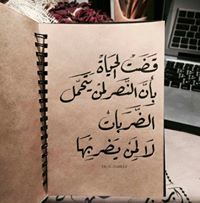 قضت الحياة
بأن النصر لمن يتحمل
الضربات
لا لمن يضربها